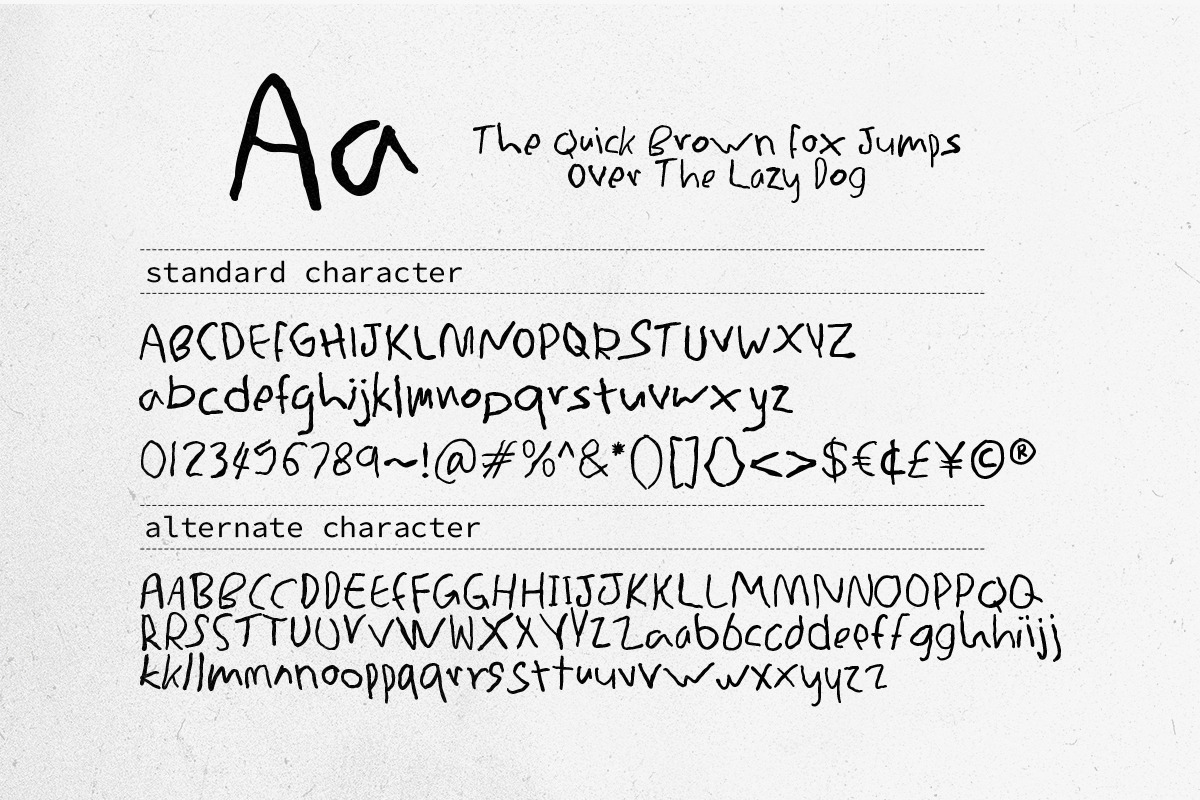 Aa
The Quick Brown fox Jumps
over The Lazy Dog
standard character
ABCDEfGHIJKLMNOPQRSTUVWXYZ
abcdefghijklmnopqrstuvwxyz
0123456789~!@#%^&*()[]{}<>$€¢£¥©®
alternate character
AABBCCDDEEfFGGHHIIJJKKLLMMNNOOPPQQ
RRSSTTUUVVWWXXYYZZaabbccddeeffgghhiijj
kkllmmnnooppqqrrssttuuvvwwxxyyzz